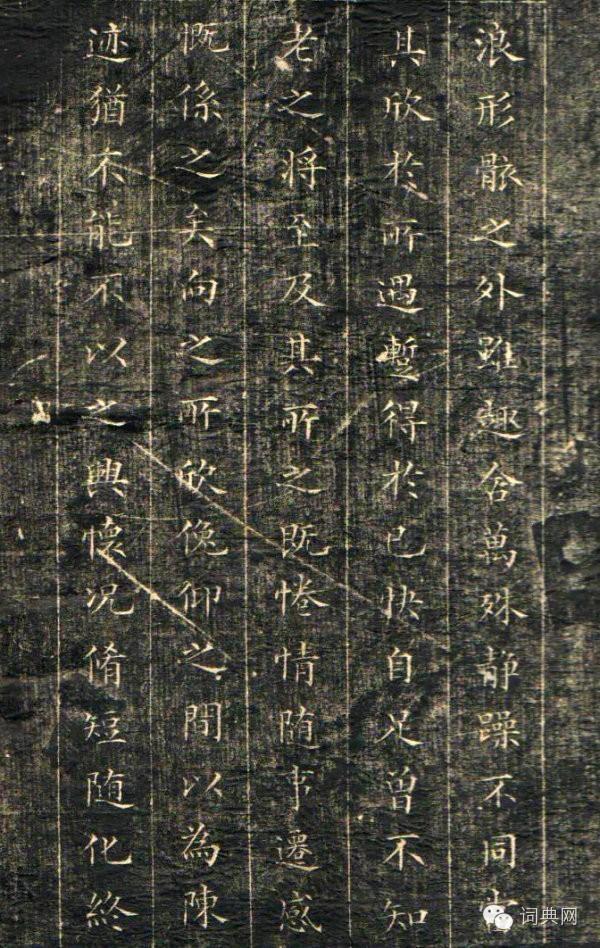 浪形骸之外雖趣舍萬殊静躁不同當
其欣於所遇蹔得於己快自足曾不知
老之將至及其所之既惓情随事遷感
慨係之矣向之所欣俛仰之間以為陳
迹猶不能不以之興懷况脩短随化終
词典网